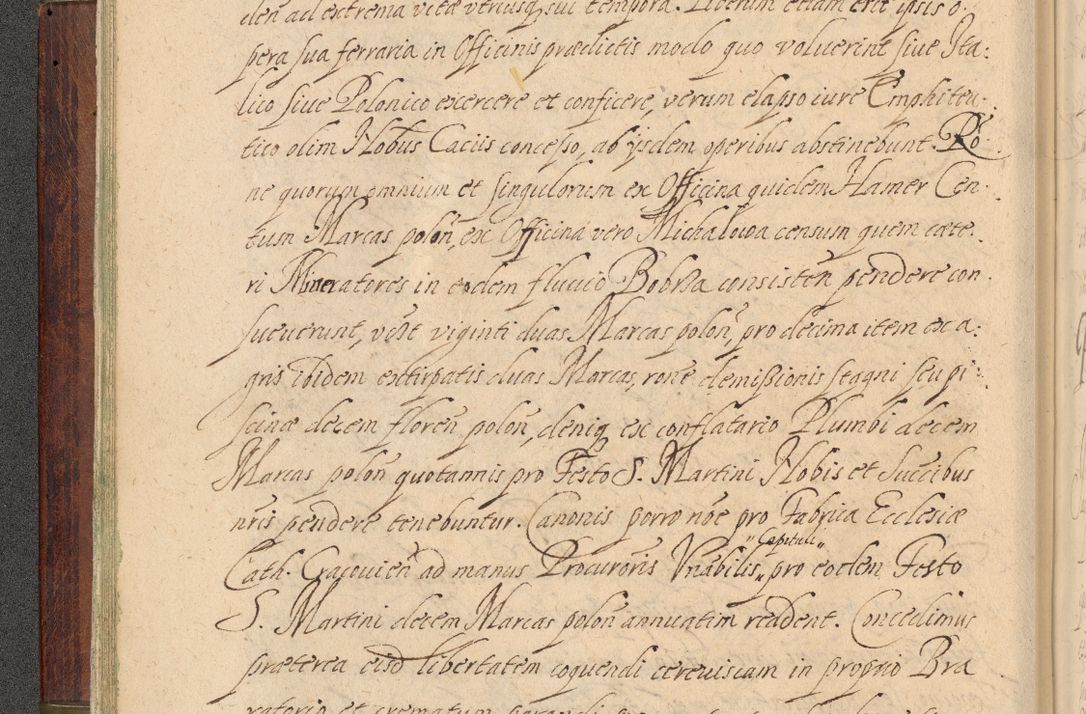 den ad extrema vitæ utriusq̃ sui tempora. Licitum etiam erit ipsis o
pera sua ferraria in Officinis prædictis modo quo voluerint siue Ita:
lico siue Polonico excercere et conficere, verum elapso iure Emphiteu.
tico olim Nobus Caciis concesso, ab ysdem operibus abstinebunt. Ro
ne quorum omnium et singulorum ex Officina quidem Hamer Cen.
tum Marcas polon̄, ex Officina vero Michalowa censum quem cæte.
ri Mineratores in eodem fluuio Bobrza consisten̄ pendere con
sueuerunt, vest viginti duas Marcas polon̄, pro decima item ex a:
gris ibidem extirpatis duas Marcas, rone demissionis stagni seu pi:
scinæ decem floren̄ polon̄, deniq̃ ex conflatario Plumbi decem
Marcas polon̄ quotannis pro Festo S. Martini Nobis et Succibus
nris pendere tenebuntur. Canonis porro noe pro Fabrica Ecclesiæ
Cath. Cracouien̄ ad manus Procuroris Vnabilis „Capituli„ pro eodem Festo
S. Martini decem Marcas polon̄ annuatim reddent. Concedimus
præterea eisd libertatem coquendi cereuisiam in proprio Bra
xatorio et crematum parandi